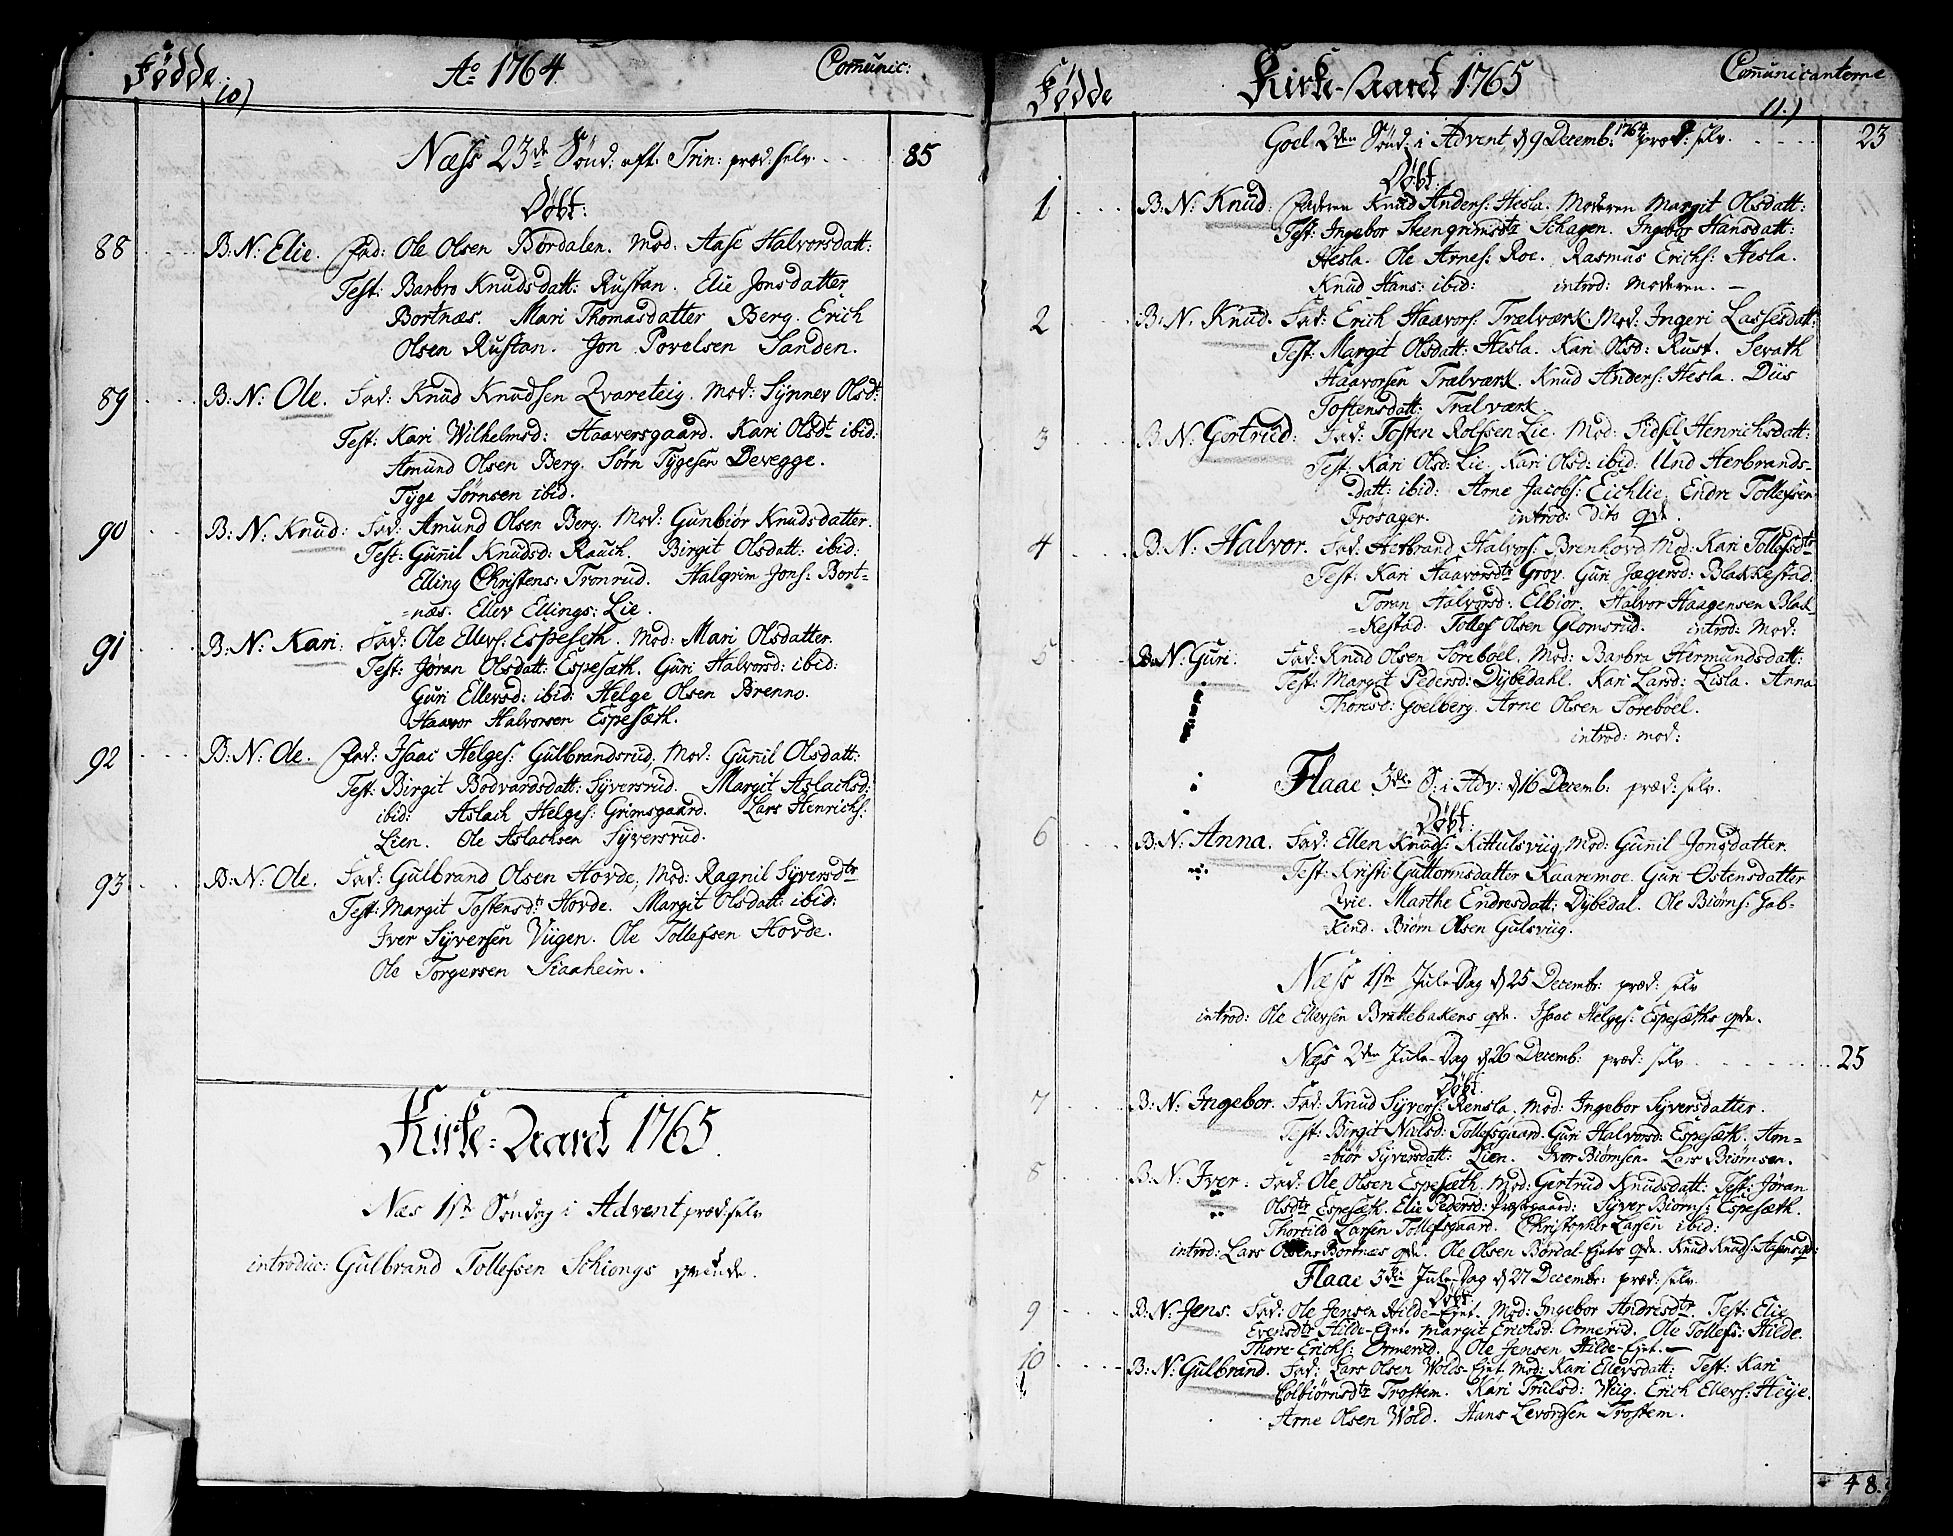 Fødde. 10) Ao 1764 Comunic:
Næss 23de Sönd: eft. Trin: præd. selv. 85
Döbt:
88 B: N: Elie. Fad: Ole Olsen Bördalen. Mod. Aase Halvorsdatt:
Test: Barbro Knudsdatt: Rustan. Elie Jonsdatter
Bortnæs. Mari Thomasdatter Berg. Erich
Olsen Rustan. Jon Povelsen Sanden.
89 B: N: Ole. Fad: Knud Knudsen Qvareteig. Mod: Synnev Olsdt:
Test: Kari Wilhelmsd: Haaversgaard. Kari Olsdt ibid:
Amund Olsen Berg. Sörn Tygesen Devegge.
Tyge Sörnsen ibid.
90 B: N: Knud: Fad: Amund Olsen Berg. Mod: Gunbiør Knudsdatter.
Test: Guñil Knudsd: Rauch. Birgit Olsdatt: ibid:
Elling Christens: Tronrud. Halgrim Jons: Bort=
=næs. Ellev Ellings: Lie.
91 B: N: Kari: Fad: Ole Ellevs: Espeseth. Mod: Mari Olsdatter.
Test: Jøran Olsdatt: Espesæth. Guri Halvorsd: ibid:
Guri Ellevsd: ibid: Helge Olsen Brenno.
Haavor Halvorsen Espesæth.
92 B: N: Ole. Fad: Isaac Helges: Gulbrandsrud, Mod: Guñil Olsdatt:
Test: Birgit Bodvardsdatt: Syversrud. Margit Aslachsd:
ibid: Aslach Helges: Grimsgaard. Lars Henrichs:
Lien. Ole Aslachsen Syversrud.
93 B: N: Ole. Fad: Gulbrand Olsen Hovde, Mod: Ragnil Syversdtr
Test: Margit Tostensdt: Hovde. Margit Olsdatt: ibid:
Iver Syversen Viigen. Ole Tollefsen Hovde.
Ole Torgersen Siaaheim.
Kirke=Aaret 1765.
Næs 1ste Söndag i Advent præd. selv
introduc: Gulbrand Tollefsen Schiongs qvinde.
Fødde Kirke-Aaret 1765 Comunicanterne 11.)
Goel 2den Sönd: i Advent, d 9 Decemb: 1764 præd: selv. 23
Döbt:
1 B: N: Knud: Faderen Knud Anders: Hesla. Moderen Margit Olsdatt:
Test: Ingebor Steengrimsdtr Schagen. Ingebor Hansdatt:
Hesla. Ole Arnes: Roe. Rasmus Erichs: Hesla.
Knud Hans: ibid: introd: Moderen. —
2 B: N: Knud. Fad: Erich Haavors: Trælværk Mod: Ingeri Lassesdatt:
Test: Margit Olsdatt: Hesla. Kari Olsd: Rust. Sevath
Haavorsen Trælværk. Knud Anders: Hesla. Diis
Tostensdatt: Trælværk
3 B: N: Gertrud: Fad: Tosten Rolfsen Lie. Mod: Sidsel Henrichsdatt:
Test: Kari Olsd: Lie. Kari Olsd: ibid: Und Herbrands-
datt: ibid: Arne Jacobs: Eichlie. Endre Tollefsen
Trosager. introd: dito qde.
4 B: N: Halvor. Fad: Herbrand Halvors: Brenhovd Mod: Kari Tollefsdtr
Test: Kari Haavorsdtr Grov. Guri Jægersd: Blakkestad.
Toran Halvorsd: Elbiør. Halvor Haagensen Blak-
=kestad. Tollef Olsen Glomsrud. introd: Mod:
5 B: N: Guri. Fad: Knud Olsen Soreboel. Mod: Barbra Hermundsdatt:
Test: Margit Pedersd: Dybedahl. Kari Larsd: Lisla. Anna
Thorsd: Goelberg. Arne Olsen Soreboel.
introd: mod:
Flaae 3de S: i Adv: d 16 Decemb: præd: selv.
Döbt:
6 B: N: Anna. Fad: Ellen Knuds: Kittulsviig, Mod: Gunil Jonsdatter.
Test: Kristi Guttormsdatter Kaaremoe. Guri Østensdatter
Qvie. Marthe Endresdatt: Dybedal. Ole Biørns: Jab-
Kend. Biørn Olsen Gulsviig.
Næss 1ste Jule-Dag d 25 Decembr: præd: selv
introd: Ole Ellevsen Brattebakens qde. Isaac Helges: Espesæths qde.
Næs 2den Jule-Dag d 26 Decemb: præd: selv 25
Döbt:
7 B: N: Ingebor. Fad: Knud Syvers: Rensla. Mod: Ingebor Syversdatter.
Test: Birgit Neilsd: Tollefsgaard. Guri Halvorsd: Espesæth. Am=
=biør Syversdatt: Lien. Iver Biørnsen. Lars Biørnsen.
8 B: N: Iver: Fad: Ole Olsen Espesæth. Mod: Gertrud Knudsdatt: Test: Jøran
Olsdtr Espesæth. Elie Pedersd: Præstgaard: Syver Biørns: Espesæth.
Thorkild Larsen Tollefsgaard. Christopher Larsen ibid:
introd: Lars Olsens Bortnæs qde. Ole Olsen Bördal-Ejets qde. Knud Knuds: Aasens qd:
Flaae 3de Jule-Dag d 27 Decembr: præd: selv.
Döbt:
9 B: N: Jens. Fad: Ole Jensen Hilde-Ejet. Mod: Ingebor Andresdtr. Test: Elie
Evensdtr Hilde-Ejet. Margit Erichsd: Ormerud. Ole Tollefs: Hilde.
Thore Erichs: Ormerud. Ole Jensen Hilde-Ejet. —
10 B: N: Gulbrand. Fad: Lars Olsen Wolds-Ejet. Mod: Kari Ellevsdatt: Test: Kari
Colbiørnsdtr Trostem. Kari Trulsd: Wiig. Erich Ellevs: Heye.
Arne Olsen Wold. Hans Levordsen Trostem.
48.